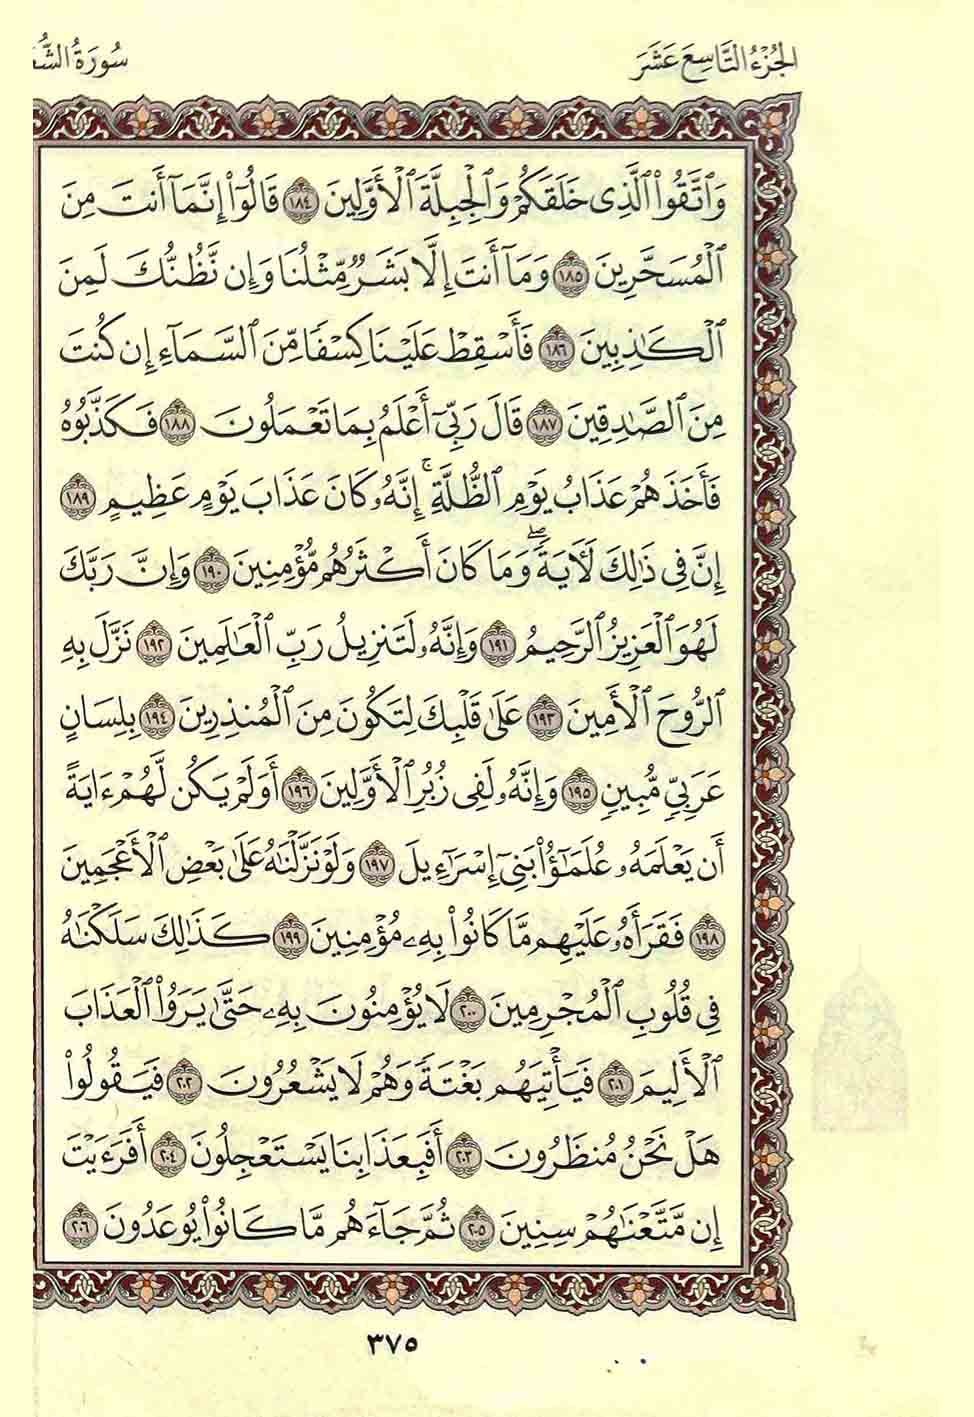 الجُزْءُ التَّاسِعَ عَشَرَ
سُورَةُ
وَٱتَّقُوا۟ ٱلَّذِى خَلَقَكُمْ وَٱلْجِبِلَّةَ ٱلْأَوَّلِينَ ١٨٤ قَالُوٓا۟ إِنَّمَآ أَنتَ مِنَ
ٱلْمُسَحَّرِينَ ١٨٥ وَمَآ أَنتَ إِلَّا بَشَرٌ مِّثْلُنَا وَإِن نَّظُنُّكَ لَمِنَ
ٱلْكَٰذِبِينَ ١٨٦ فَأَسْقِطْ عَلَيْنَا كِسَفًا مِّنَ ٱلسَّمَآءِ إِن كُنتَ
مِنَ ٱلصَّٰدِقِينَ ١٨٧ قَالَ رَبِّىٓ أَعْلَمُ بِمَا تَعْمَلُونَ ١٨٨ فَكَذَّبُوهُ
فَأَخَذَهُمْ عَذَابُ يَوْمِ ٱلظُّلَّةِ ۚ إِنَّهُۥ كَانَ عَذَابَ يَوْمٍ عَظِيمٍ ١٨٩
إِنَّ فِى ذَٰلِكَ لَـَٔايَةً ۖ وَمَا كَانَ أَكْثَرُهُم مُّؤْمِنِينَ ١٩٠ وَإِنَّ رَبَّكَ
لَهُوَ ٱلْعَزِيزُ ٱلرَّحِيمُ ١٩١ وَإِنَّهُۥ لَتَنزِيلُ رَبِّ ٱلْعَٰلَمِينَ ١٩٢ نَزَّلَ بِهِ
ٱلرُّوحَ ٱلْأَمِينَ ١٩٣ عَلَىٰ قَلْبِكَ لِتَكُونَ مِنَ ٱلْمُنذِرِينَ ١٩٤ بِلِسَانٍ
عَرَبِىٍّ مُّبِينٍ ١٩٥ وَإِنَّهُۥ لَفِى زُبُرِ ٱلْأَوَّلِينَ ١٩٦ أَوَلَمْ يَكُن لَّهُمْ ءَايَةً
أَن يَعْلَمَهُۥ عُلَمَٰٓؤُا۟ بَنِىٓ إِسْرَٰٓءِيلَ ١٩٧ وَلَوْ نَزَّلْنَٰهُ عَلَىٰ بَعْضِ ٱلْأَعْجَمِينَ
١٩٨ فَقَرَأَهُۥ عَلَيْهِم مَّا كَانُوا۟ بِهِۦ مُؤْمِنِينَ ١٩٩ كَذَٰلِكَ سَلَكْنَٰهُ
فِى قُلُوبِ ٱلْمُجْرِمِينَ ٢٠٠ لَا يُؤْمِنُونَ بِهِۦ حَتَّىٰ يَرَوُا۟ ٱلْعَذَابَ
ٱلْأَلِيمَ ٢٠١ فَيَأْتِيَهُم بَغْتَةً وَهُمْ لَا يَشْعُرُونَ ٢٠٢ فَيَقُولُوا۟
هَلْ نَحْنُ مُنظَرُونَ ٢٠٣ أَفَبِعَذَابِنَا يَسْتَعْجِلُونَ ٢٠٤ أَفَرَءَيْتَ
إِن مَّتَّعْنَٰهُمْ سِنِينَ ٢٠٥ ثُمَّ جَآءَهُم مَّا كَانُوا۟ يُوعَدُونَ ٢٠٦
٣٧٥